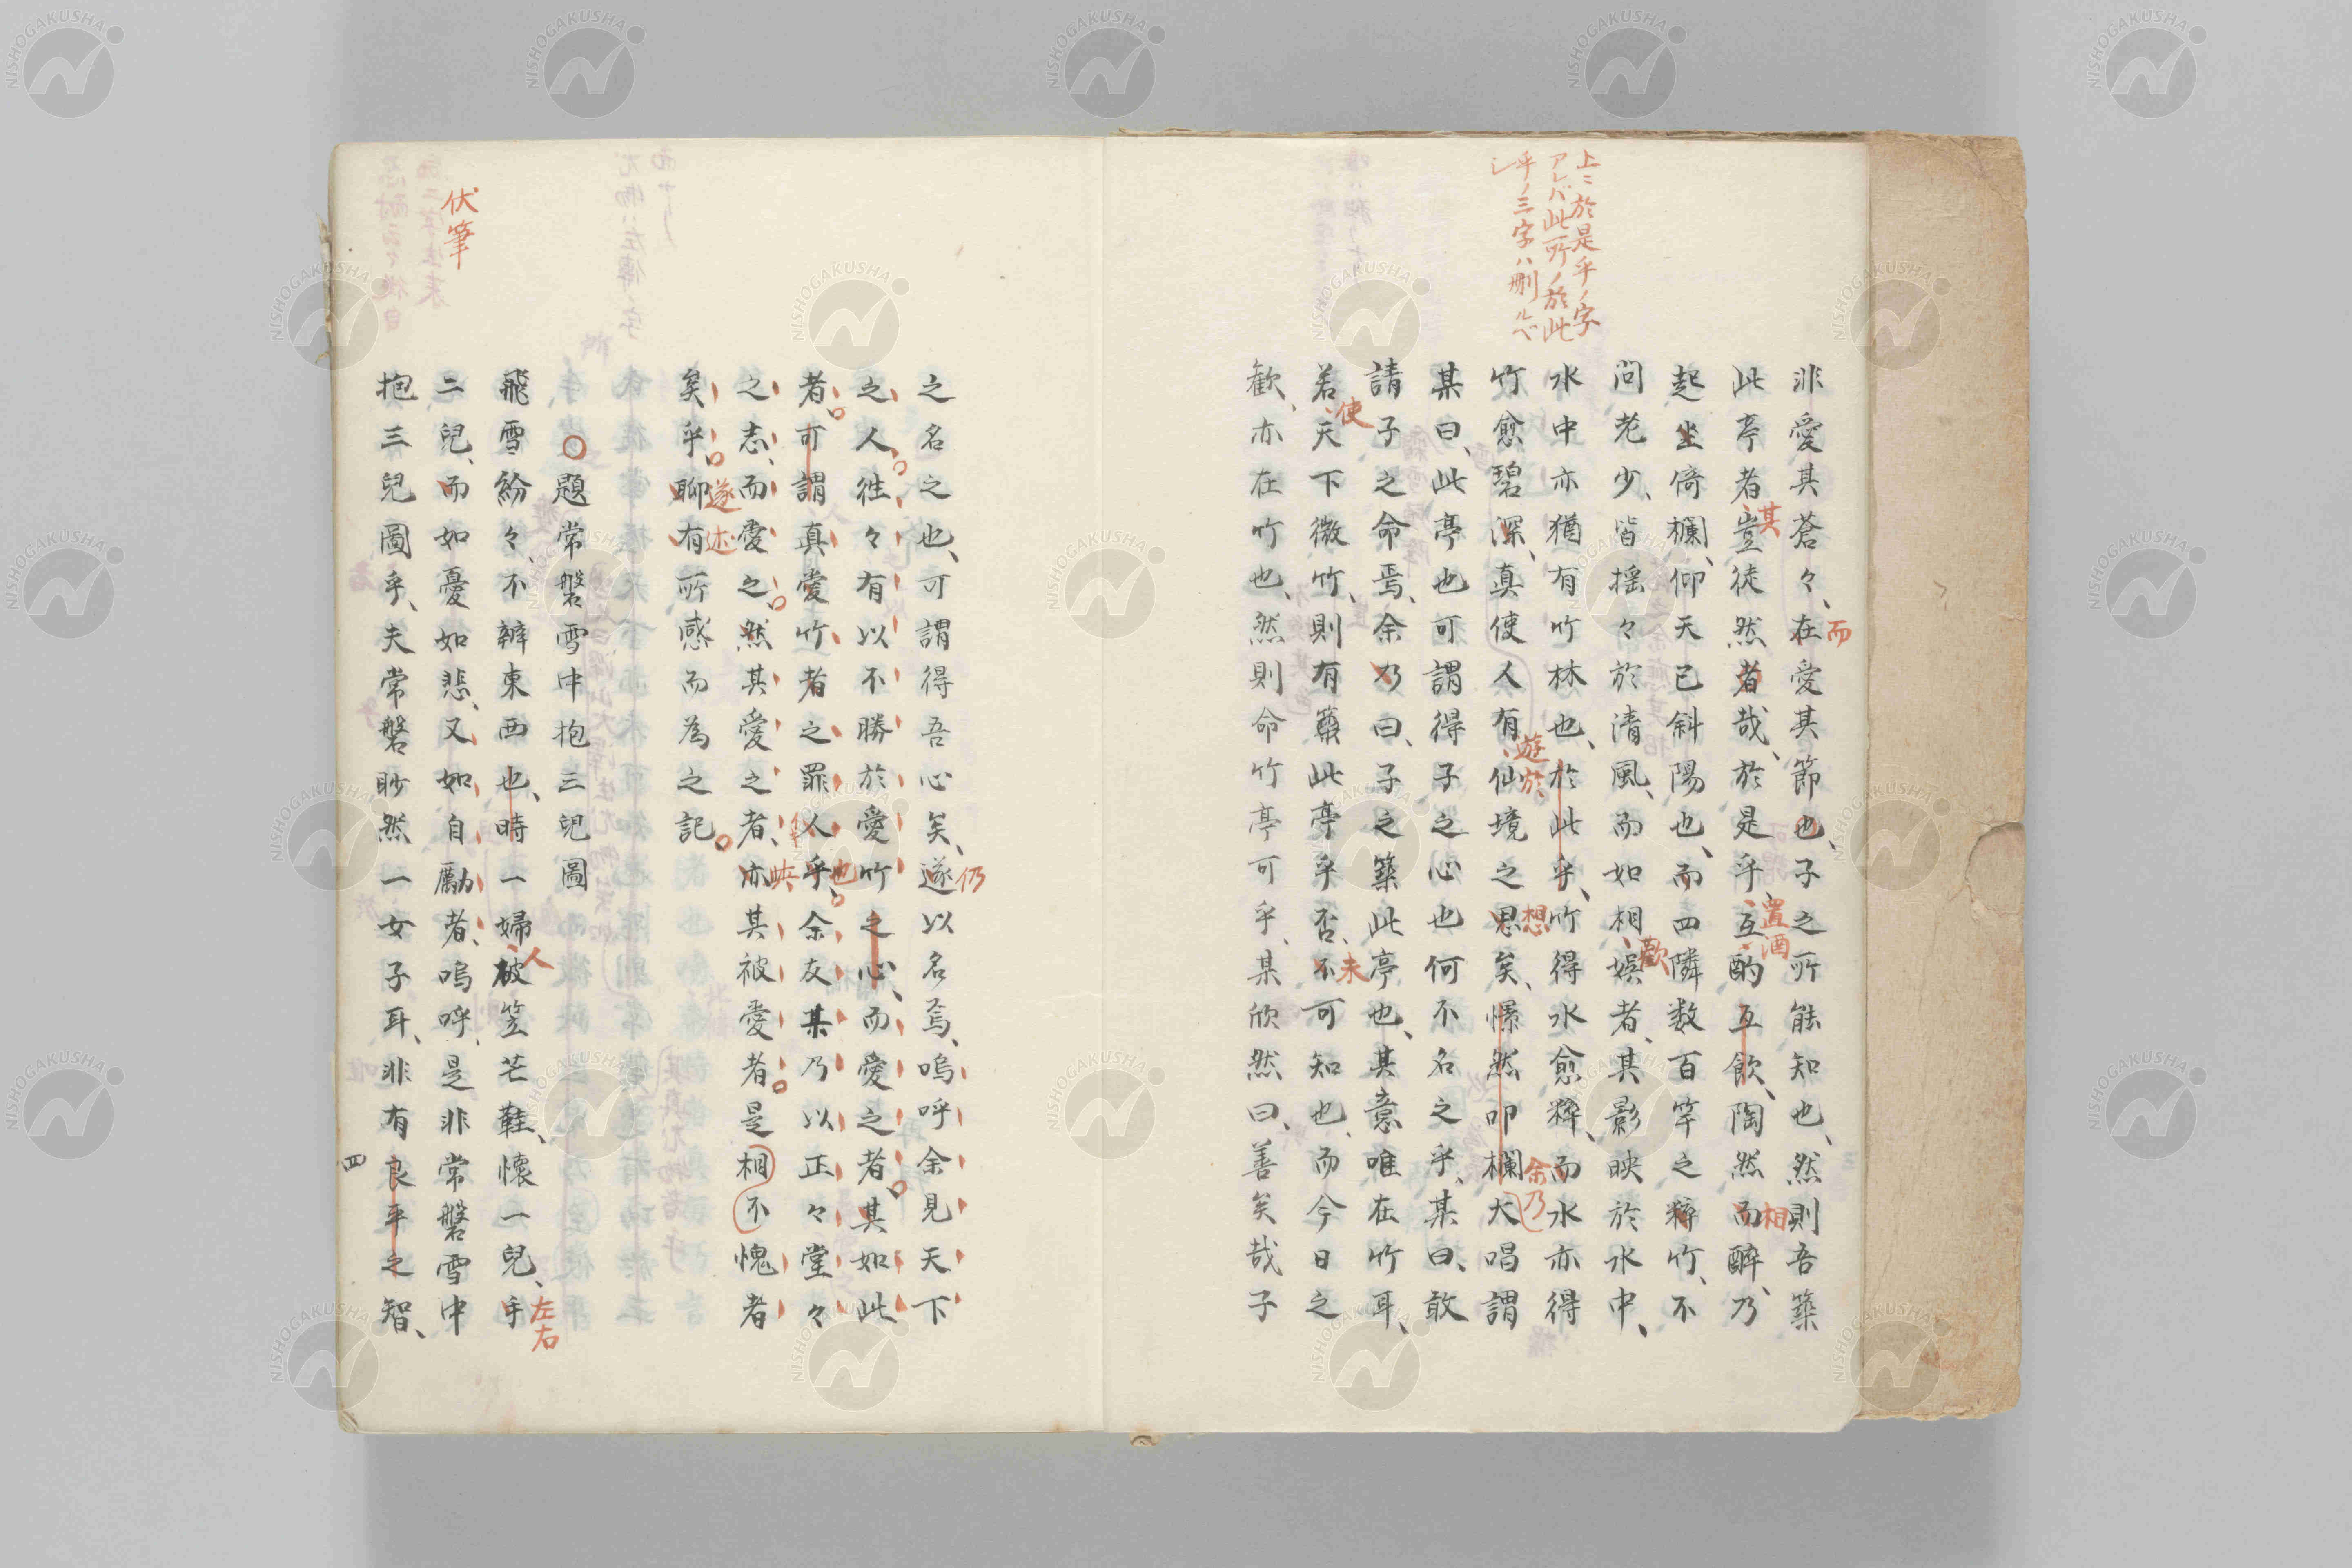 上ニ於是乎ノ字
アレバ此所ノ於此
乎ノ三字ハ删ルベ
シ
非愛其蒼々、在愛其節也、子之所能知也、然則吾築
而
此亭者豈徒然者哉、於是乎互酌互飲、陶然而醉、乃
其
置酒
相
起坐倚欄、仰天已斜陽也、而四隣数百竿之粹竹、不
問老少、皆揺々於清風、而如相娯者、其影映於水中、
歡
水中亦猶有竹林也、於此乎、竹得水愈粹、而水亦得
竹愈碧深、真使人有仙境之思矣、憬然叩欄大唱謂
遊於
想
余乃
某曰、此亭也可謂得子之心也何不名之乎、某曰、敢
請子之命焉、余乃曰、子之築此亭也、其意唯在竹耳、
若天下微竹、則有築此亭乎否、不可知也、而今日之
使
未
歓、亦在竹也、然則命竹亭可乎、某欣然曰、善矣哉子
之名之也、可謂得吾心矣、遂以名焉、嗚呼余見天下
仍
之人徃々有以不勝於愛竹之心、而愛之者其如此
者可謂真愛竹者之罪人乎、余友某乃以正々堂々
也
之志、而愛之然其愛之者、亦其被愛者是相不愧者
矣乎聊有所感而為之記
遂述
○題常磐雪中抱三兒圖
飛雪紛々、不辨東西也、時一婦被笠芒鞋、懐一兒、手
人
左右
伏筆
二兒、而如憂如悲、又如自勵者、嗚呼、是非常磐雪中
抱三兒圖乎、夫常磐眇然一女子耳、非有良平之智、
四
NISHOGAKUSHA